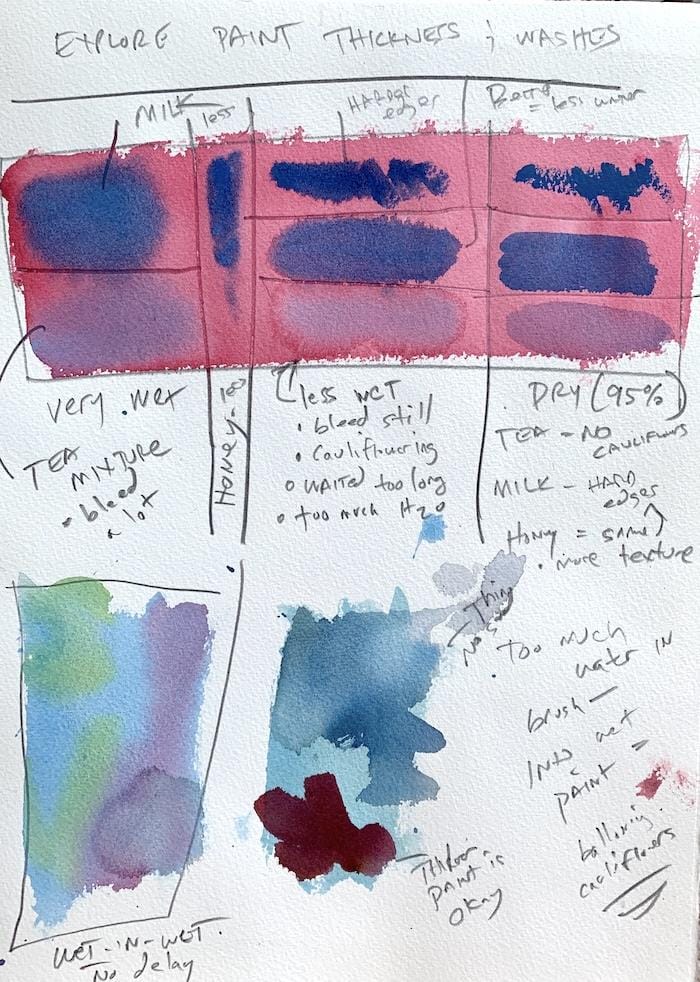 EXPLORE PAINT THICKNESS & WASHES
MILK
less
HARDER
edges
= less water
very wet
TEA
MIXTURE
• bleed
a lot
Honey - less
less WET
• bleed still
• Cauliflowering
• WAITED too long
• too much H2O
DRY (95%)
TEA - NO
CAULIFLOWERS
MILK - HARD
edges
Honey = same
• more texture
Thin
No
Too much
water IN
brush —
INTO wet
paint =
cauliflowers
Thicker
paint is
okay
WET-IN-WET.
No delay